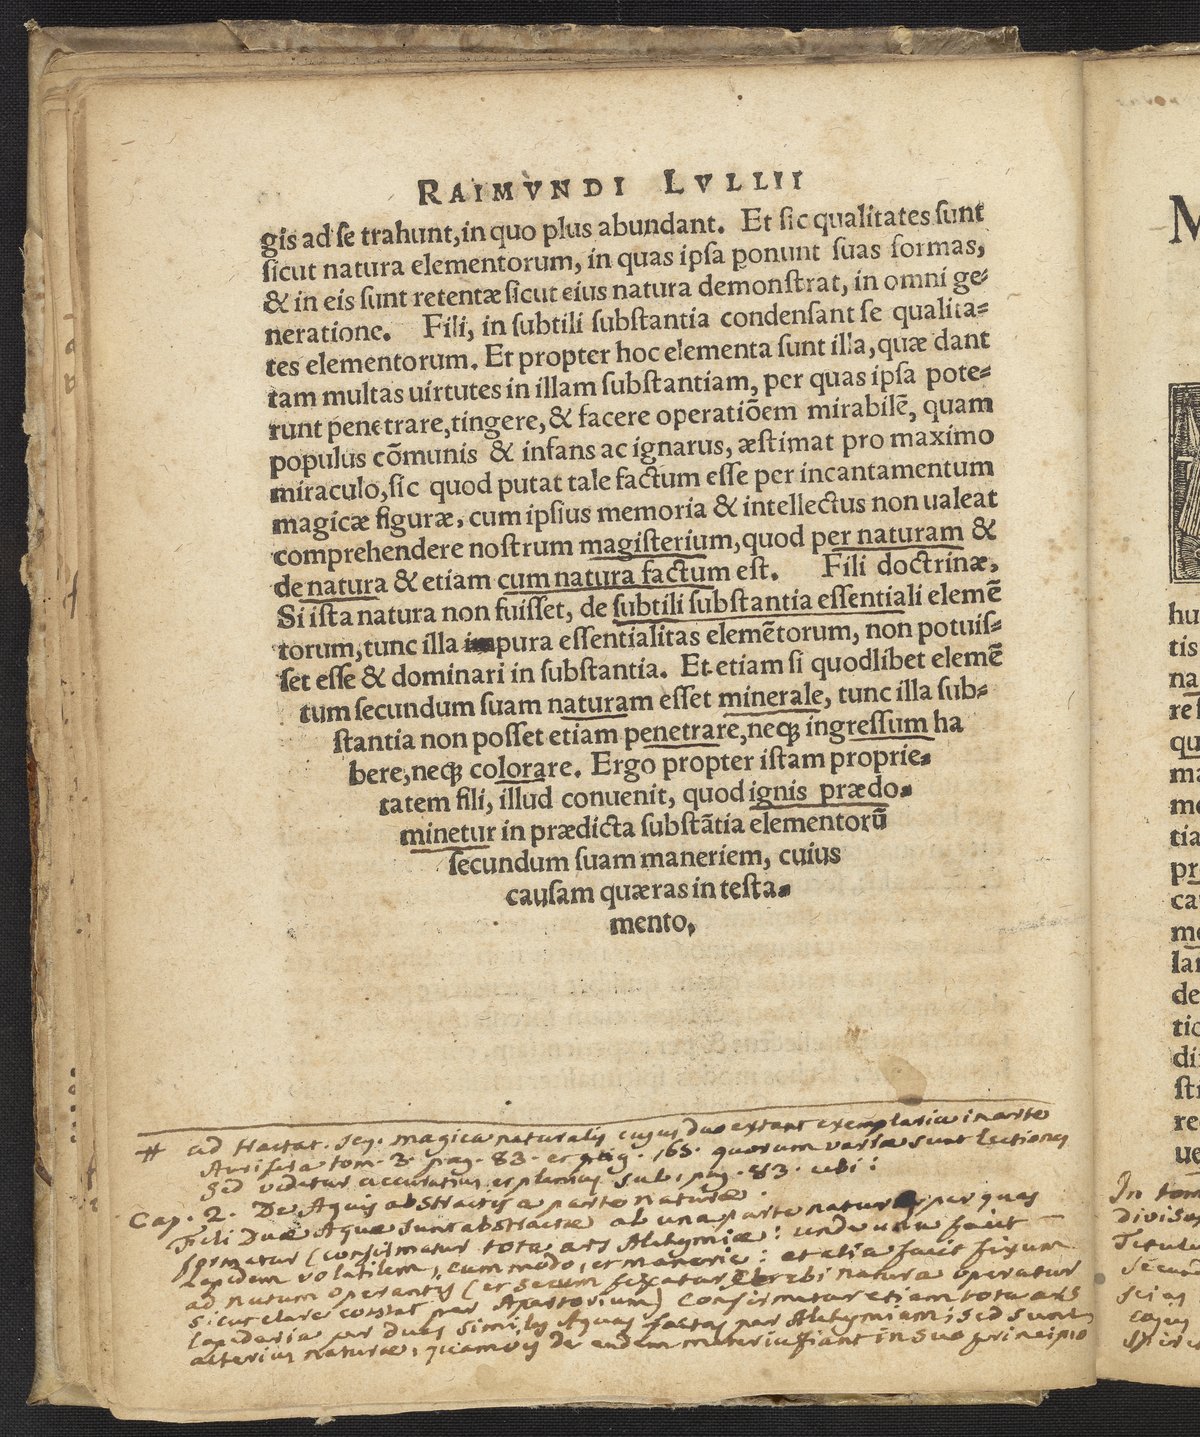 RAIMVNDI LVLLII
gis ad se trahunt, in quo plus abundant. Et sic qualitates sunt
sicut natura elementorum, in quas ipsa ponunt suas formas,
& in eis sunt retentæ sicut eius natura demonstrat, in omni ge-
neratione. Fili, in subtili substantia condensant se qualita-
tes elementorum. Et propter hoc elementa sunt illa, quæ dant
tam multas uirtutes in illam substantiam, per quas ipsa pote-
runt penetrare, tingere, & facere operatiōem mirabilē, quam
populus cōmunis & infans ac ignarus, æstimat pro maximo
miraculo, sic quod putat tale factum esse per incantamentum
magicæ figuræ, cum ipsius memoria & intellectus non ualeat
comprehendere nostrum magisterium, quod per naturam &
de natura & etiam cum natura factum est. Fili doctrinæ,
Si ista natura non fuisset, de subtili substantia essentiali elemē
torum, tunc illa pura essentialitas elemētorum, non potuis-
set esse & dominari in substantia. Et etiam si quodlibet elemē
tum secundum suam naturam esset minerale, tunc illa sub-
stantia non posset etiam penetrare, neq; ingressum ha
bere, neq; colorare. Ergo propter istam proprie-
tatem fili, illud conuenit, quod ignis prædo-
minetur in prædicta substātia elementorū
secundum suam maneriem, cuius
causam quæras in testa-
mento.
# ad tractat. seq. magica naturalis cujus duo extant exemplaria in arte
Aurifera tom. 3. pag. 83. et pag. 165. quorum variæ sunt lectiones
sed videtur accuratius et plenius sub, pag. 83. ubi:
Cap. 2. De Aquis abstractis a parte naturæ.
Fili Duæ Aquæ sunt abstractæ ab una parte naturæ, per quas
formatur (confirmatur tota ars Alchymiæ: unde una facit
Lapidem volatilem, cum modo, et manerie: et alia facit fixum
ad nutum operantis (et secum fixatur ubi natura operatur
sicut clare constat per Apertorium) Confirmatur etiam tota ars
Lapidaria per duas similes Aquas factas per Alchymiam; sed sunt
alterius naturæ, quamvis de eadem materia fiant in suo principio
M
hu
tis
na
re
qu
ma
me
tia
pr
ca
me
lar
de
tio
di
sti
re
ue
In tom